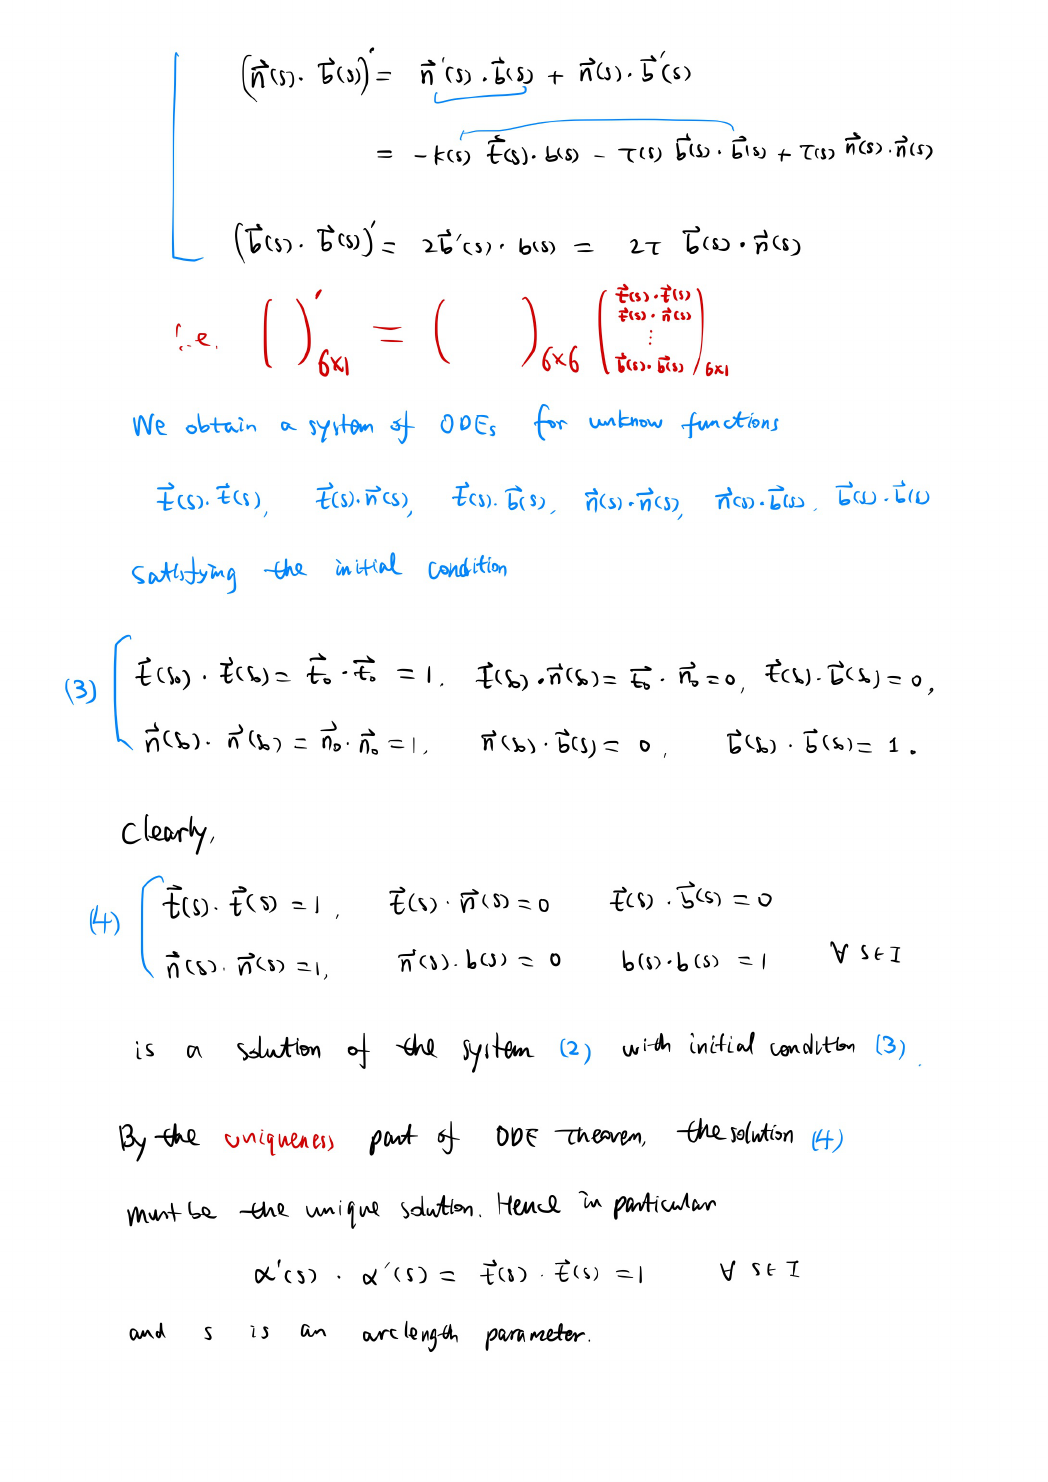 (n⃗(s)· b⃗(s))′ = n⃗′(s) · b⃗(s) + n⃗(s)· b⃗′(s)
= -k(s) t⃗(s)· b(s) - τ(s) b⃗(s)· b⃗(s) + τ(s) n⃗(s)·n⃗(s)
(b⃗(s)· b⃗(s))′ = 2b⃗′(s)· b(s) = 2τ b⃗(s)·n⃗(s)
i.e. ( )′6×1 = ( )6×6 (t⃗(s)·t⃗(s) t⃗(s)·n⃗(s) ⋮ b⃗(s)·b⃗(s))6×1
We obtain a system of ODEs for unknow functions
t⃗(s)·t⃗(s), t⃗(s)·n⃗(s), t⃗(s)·b⃗(s), n⃗(s)·n⃗(s), n⃗(s)·b⃗(s), b⃗(s)·b⃗(s)
satisfying the initial condition
(3) t⃗(s₀)· t⃗(s₀) = t⃗₀·t⃗₀ = 1, t⃗(s₀)·n⃗(s₀) = t⃗₀· n⃗₀ = 0, t⃗(s₀)·b⃗(s₀) = 0,
n⃗(s₀)· n⃗(s₀) = n⃗₀·n⃗₀ = 1, n⃗(s₀)·b⃗(s₀) = 0, b⃗(s₀)·b⃗(s₀) = 1.
Clearly,
(4) t⃗(s)· t⃗(s) = 1, t⃗(s)·n⃗(s) = 0 t⃗(s)·b⃗(s) = 0
n⃗(s)· n⃗(s) = 1, n⃗(s)·b(s) = 0 b(s)·b(s) = 1 ∀ s∈I
is a solution of the system (2) with initial condition (3).
By the uniqueness part of ODE Theorem, the solution (4)
must be the unique solution. Hence in particular
α′(s) · α′(s) = t⃗(s)· t⃗(s) = 1 ∀ s∈I
and s is an arclength parameter.